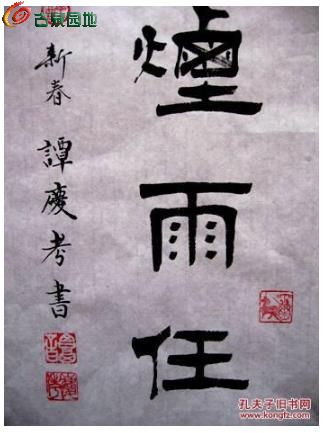 煙雨任
新春 譚慶考書
古泉园地
孔夫子旧书网